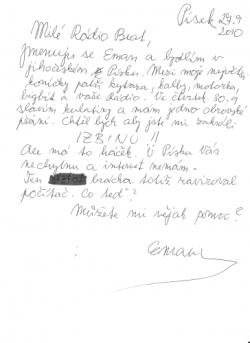 Písek 29.9
2010
Milé Rádio Beat,
Jmenuju se Eman a bydlím v
jihočeském Písku. Mezi moje největší
koníčky patří kytara, holky, motorka,
bigbít a vaše Rádio. Ve čtvrtek 30.9
slavím kulatiny a mám jedno obrovské
přání. Chtěl bych aby jste mi zahráli
IZBINU !!
Ale má to háček. U Písku Vás
nechytnu a internet nemám-
Ten brácha totiž zaviroval
počítač. Co teď?
Můžete mi nějak pomoc?
Eman